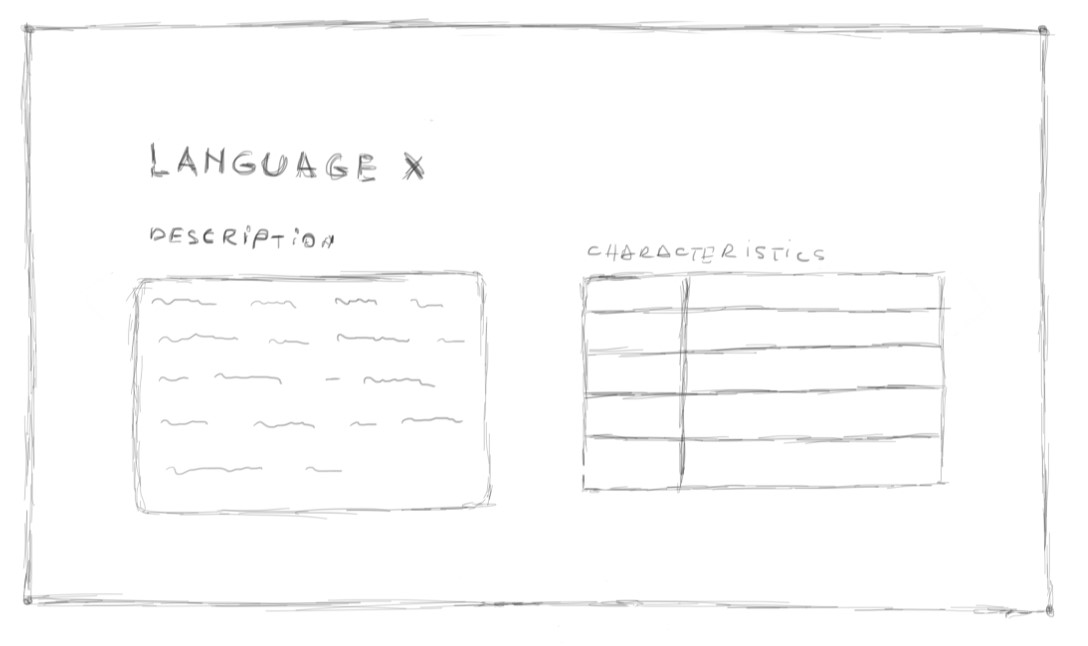 LANGUAGE X
DESCRIPTION
CHARACTERISTICS